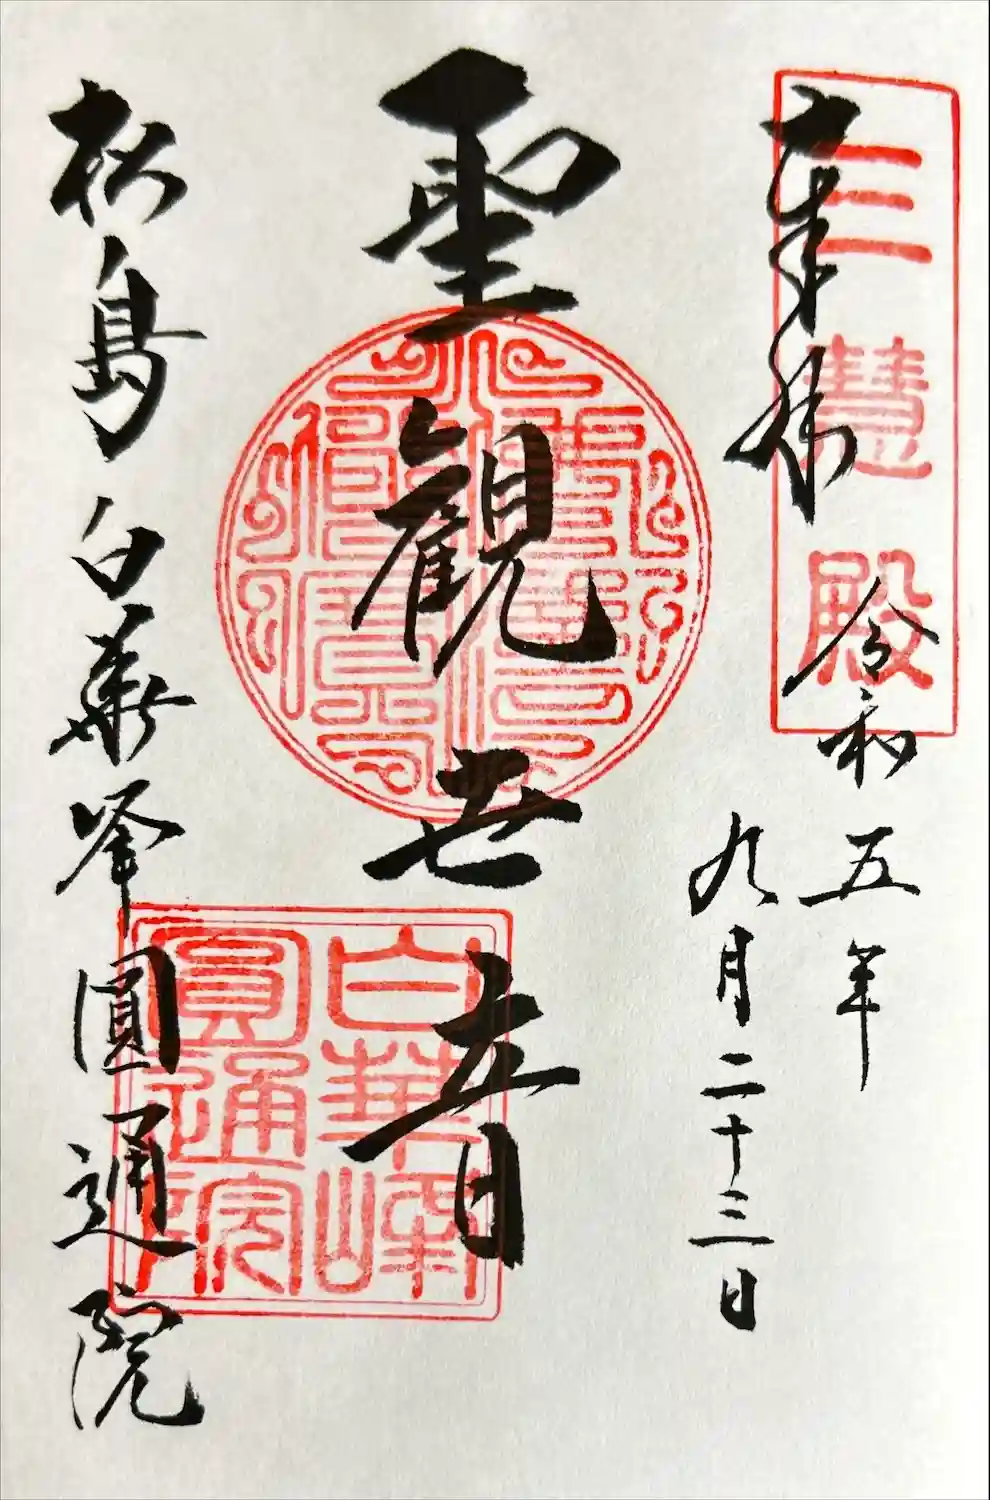 奉拝
三慧殿
令和五年
九月二十三日
聖観世音
松島白華峯圓通院
白華峰
圓通院